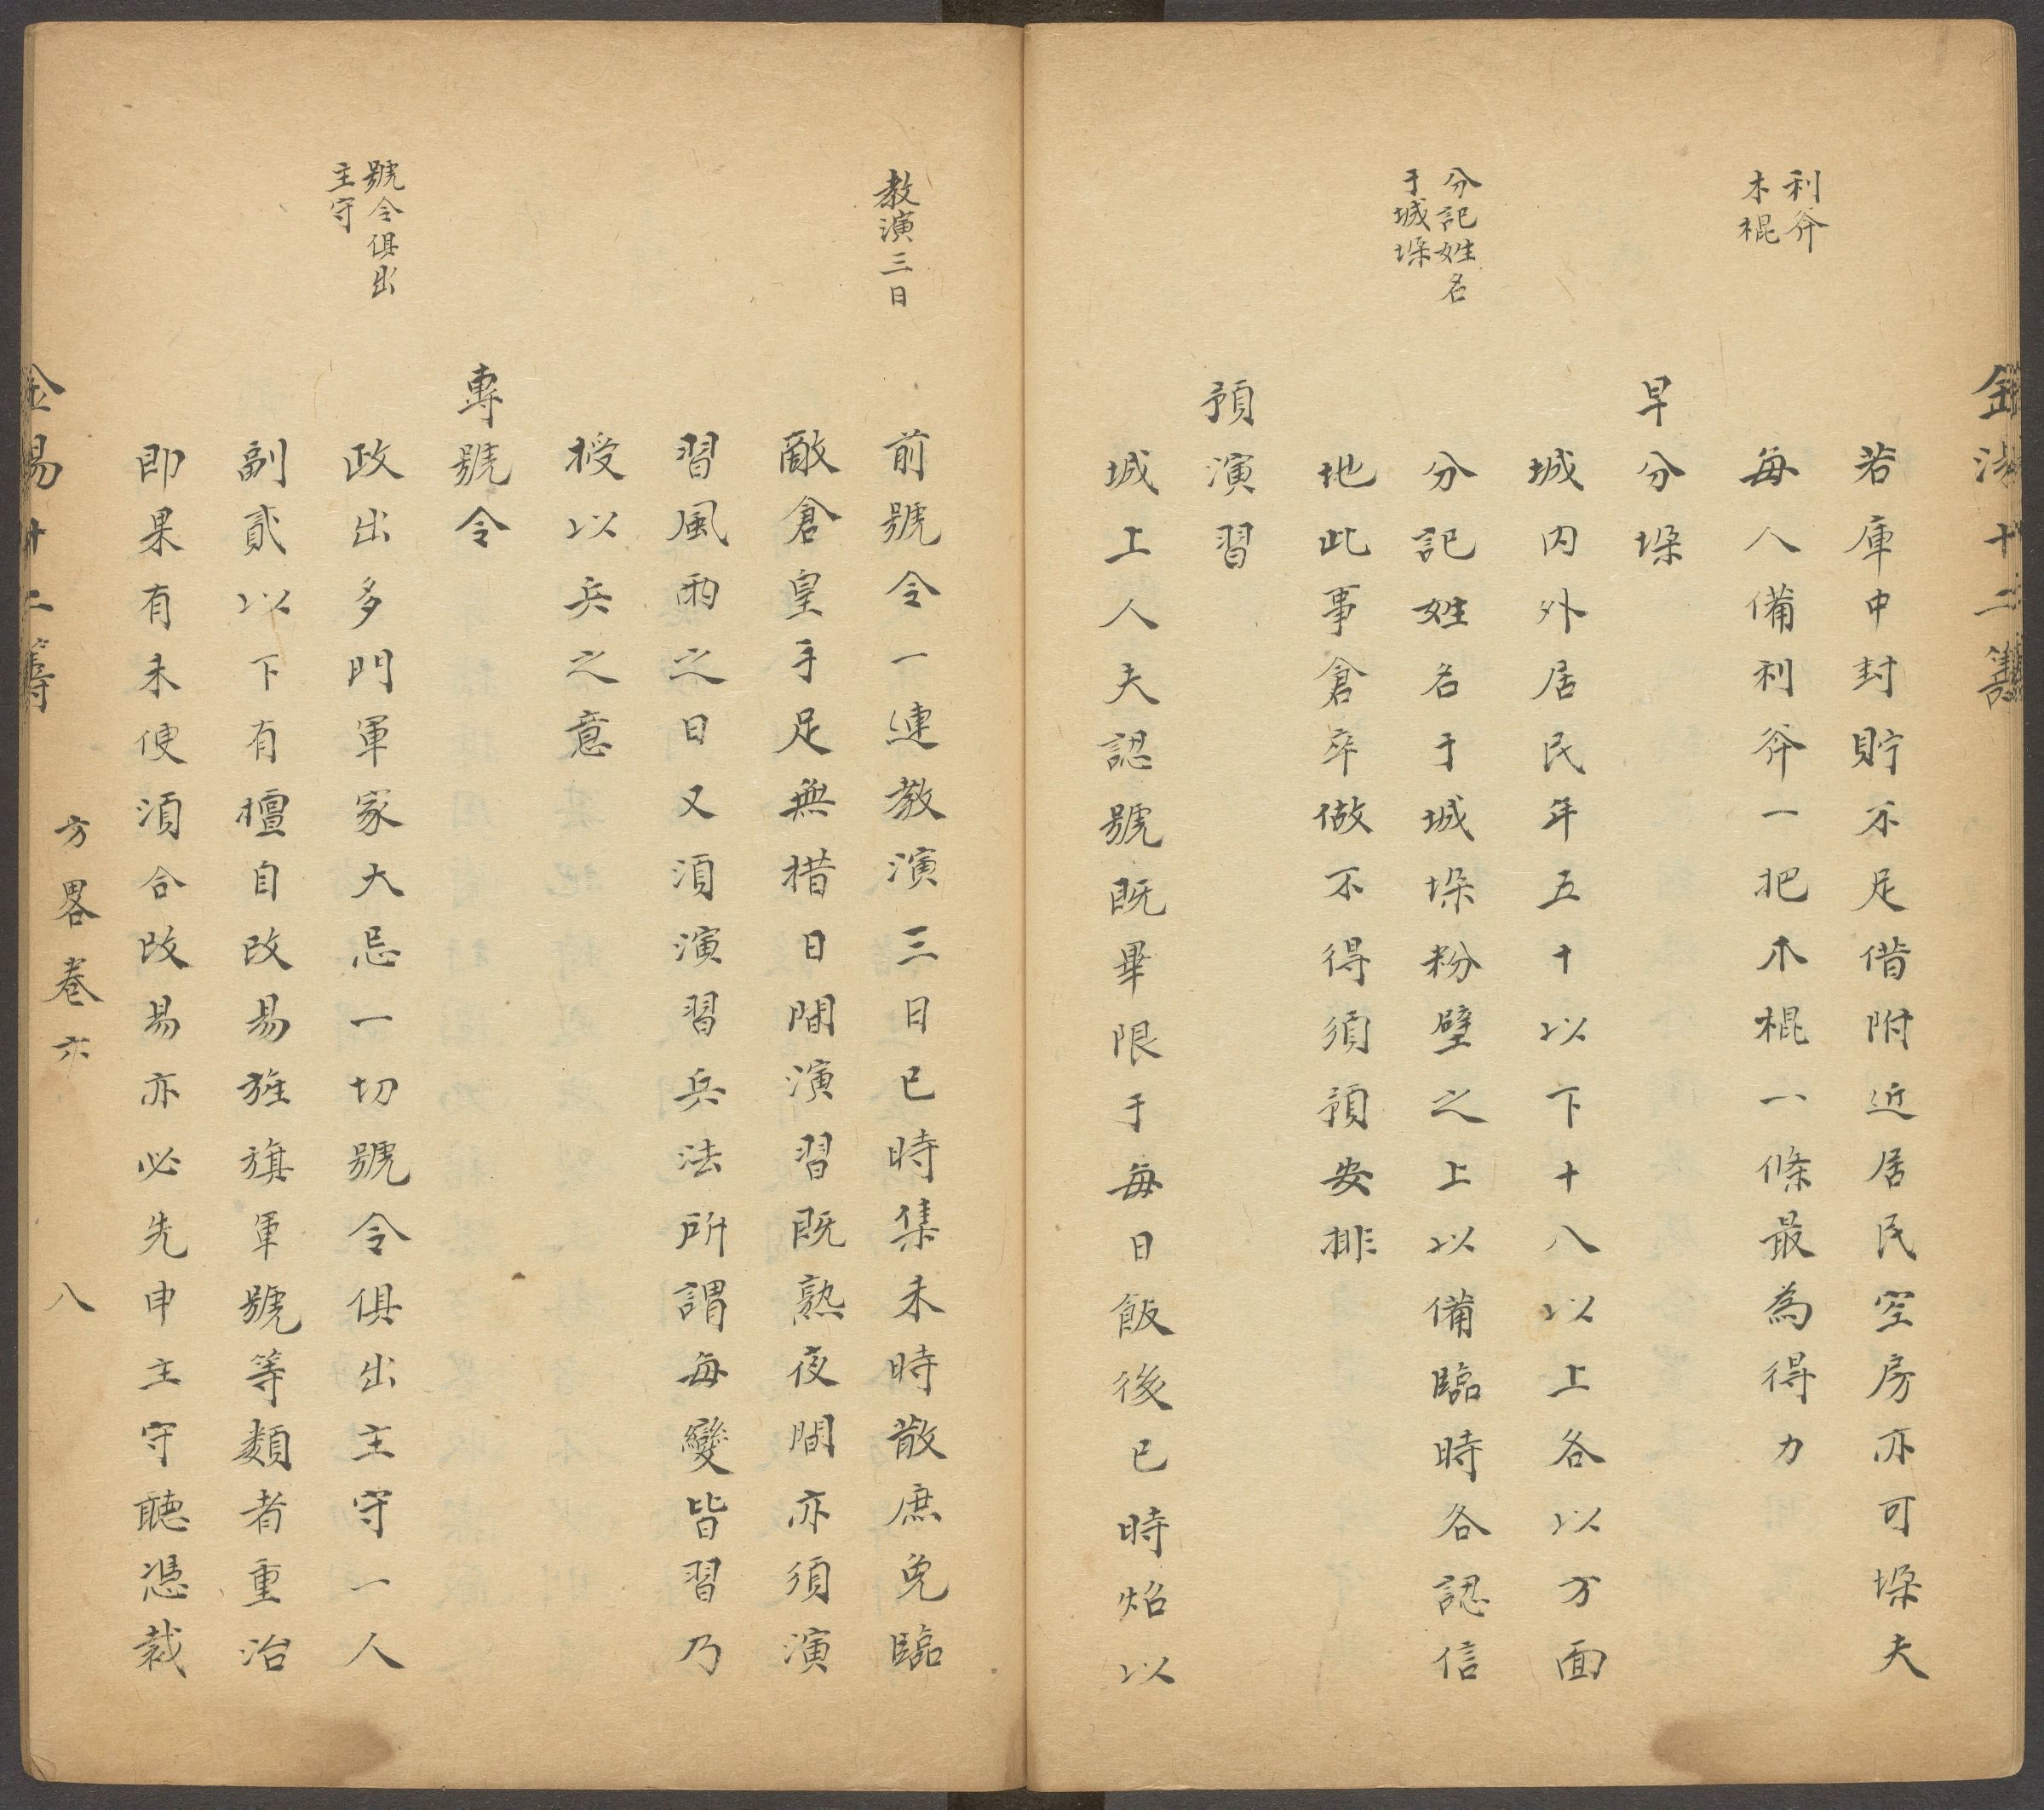 利斧
木棍
若庫中封貯不足借附近居民空房亦可垛夫
每人備利斧一把木棍一條最為得力
早分垛
城內外居民年五十以下十八以上各以方面
分記姓名
于城垛
分記姓名于城垛粉壁之上以備臨時各認信
地此事倉卒做不得須預安排
預演習
城上人夫認號既畢限于每日飯後巳時焰以
教演三日
前號令一連教演三日巳時集未時散庶免臨
敵倉皇手足無措日間演習既熟夜間亦須演
習風雨之日又須演習兵法所謂每變皆習乃
授以兵之意
專號令
號令俱出
主守
政出多門軍家大忌一切號令俱出主守一人
副貳以下有擅自改易旌旗軍號等類者重治
即果有未便須合改易亦必先申主守聽憑裁
金湯十二籌
方畧卷六
八